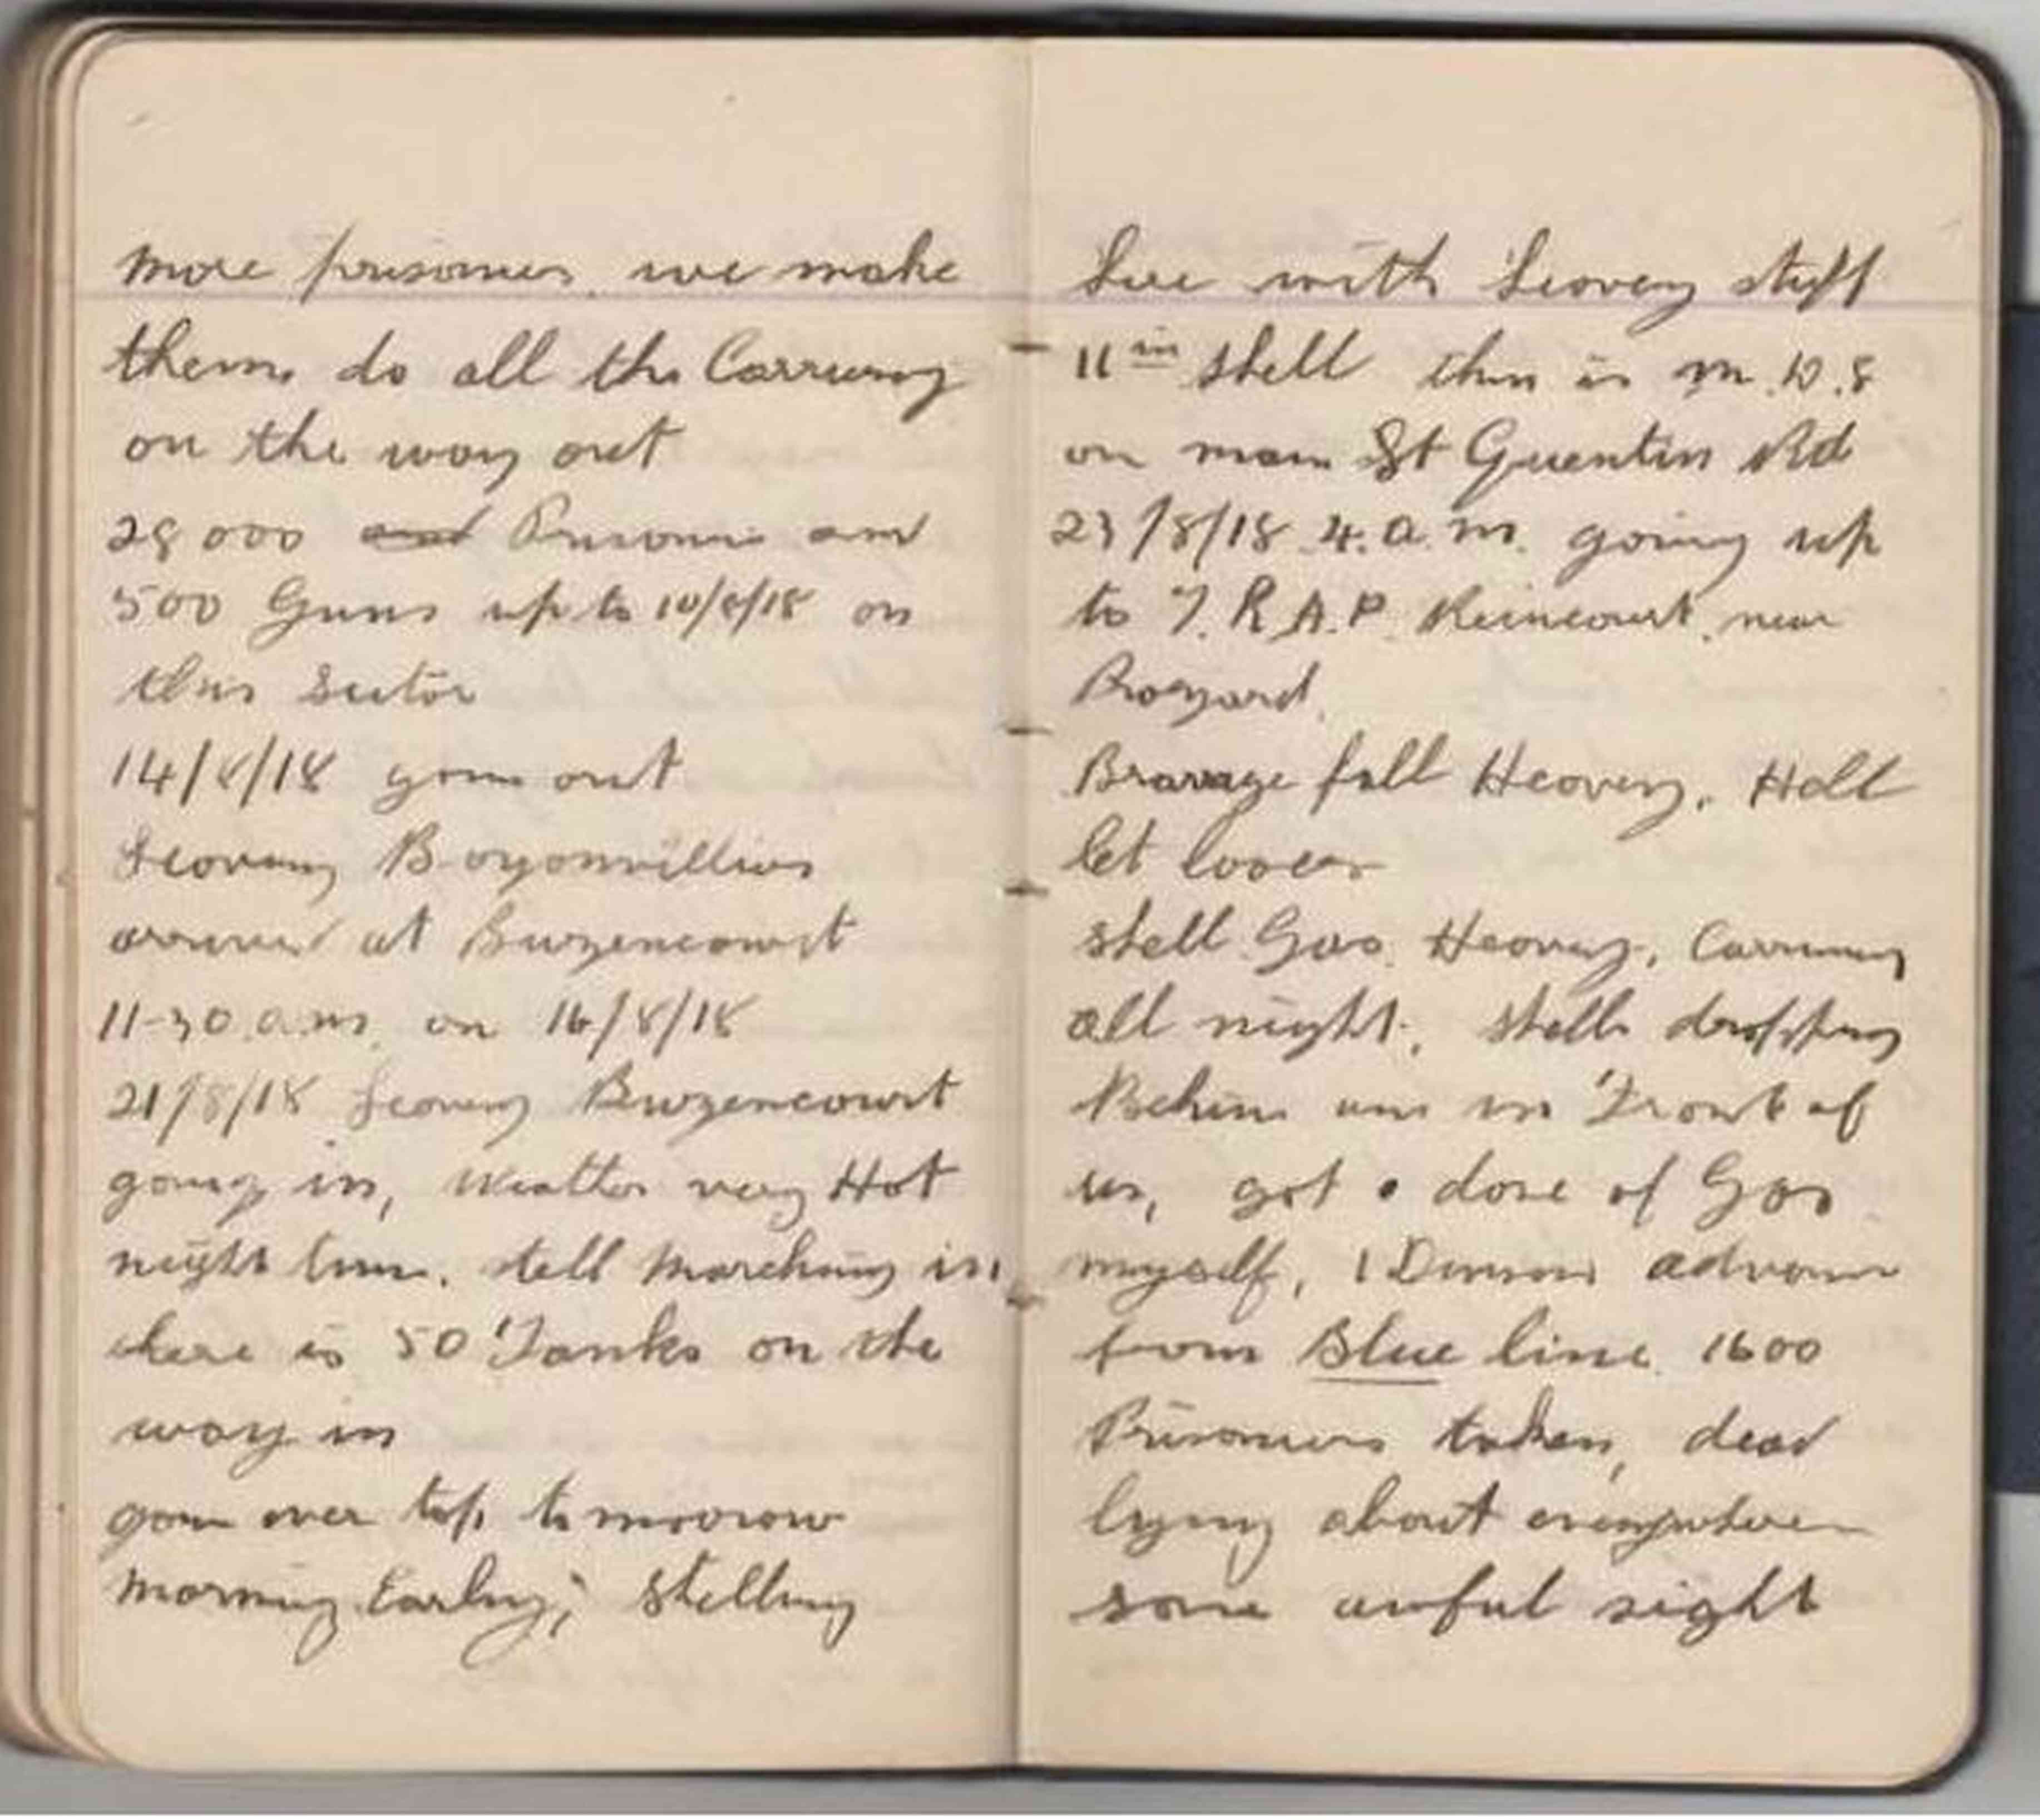 more prisoners we make
them do all the Carrying
on the way out
28000 and Prisoners and
500 Guns up to 10/8/18 on
this sector
14/8/18 going out
Leaving Bayonvilliers
arrived at Buzencourt
11-30 a.m. on 16/8/18
21/8/18 Leaving Buzencourt
going in, Weather very Hot
night time. still marching in
there is 50 Tanks on the
way in
going over top tomorrow
morning Early; Shelling
with Heavy stuff
11 in shell this is M.D.S
on main St Quentin Rd
23/8/18 4. a.m. going up
to 7. R.A.P. Reincourt, near
Proyard.
Bravage fall Heavey. Hell
let loose
shell Gas Heavey, Carrying
all night. shells dropping
Behind and in Front of
us, got a dose of Gas
myself, 1 Division advance
from Blue line 1600
Prisoners taken, dead
lying about everywhere
some awful sight